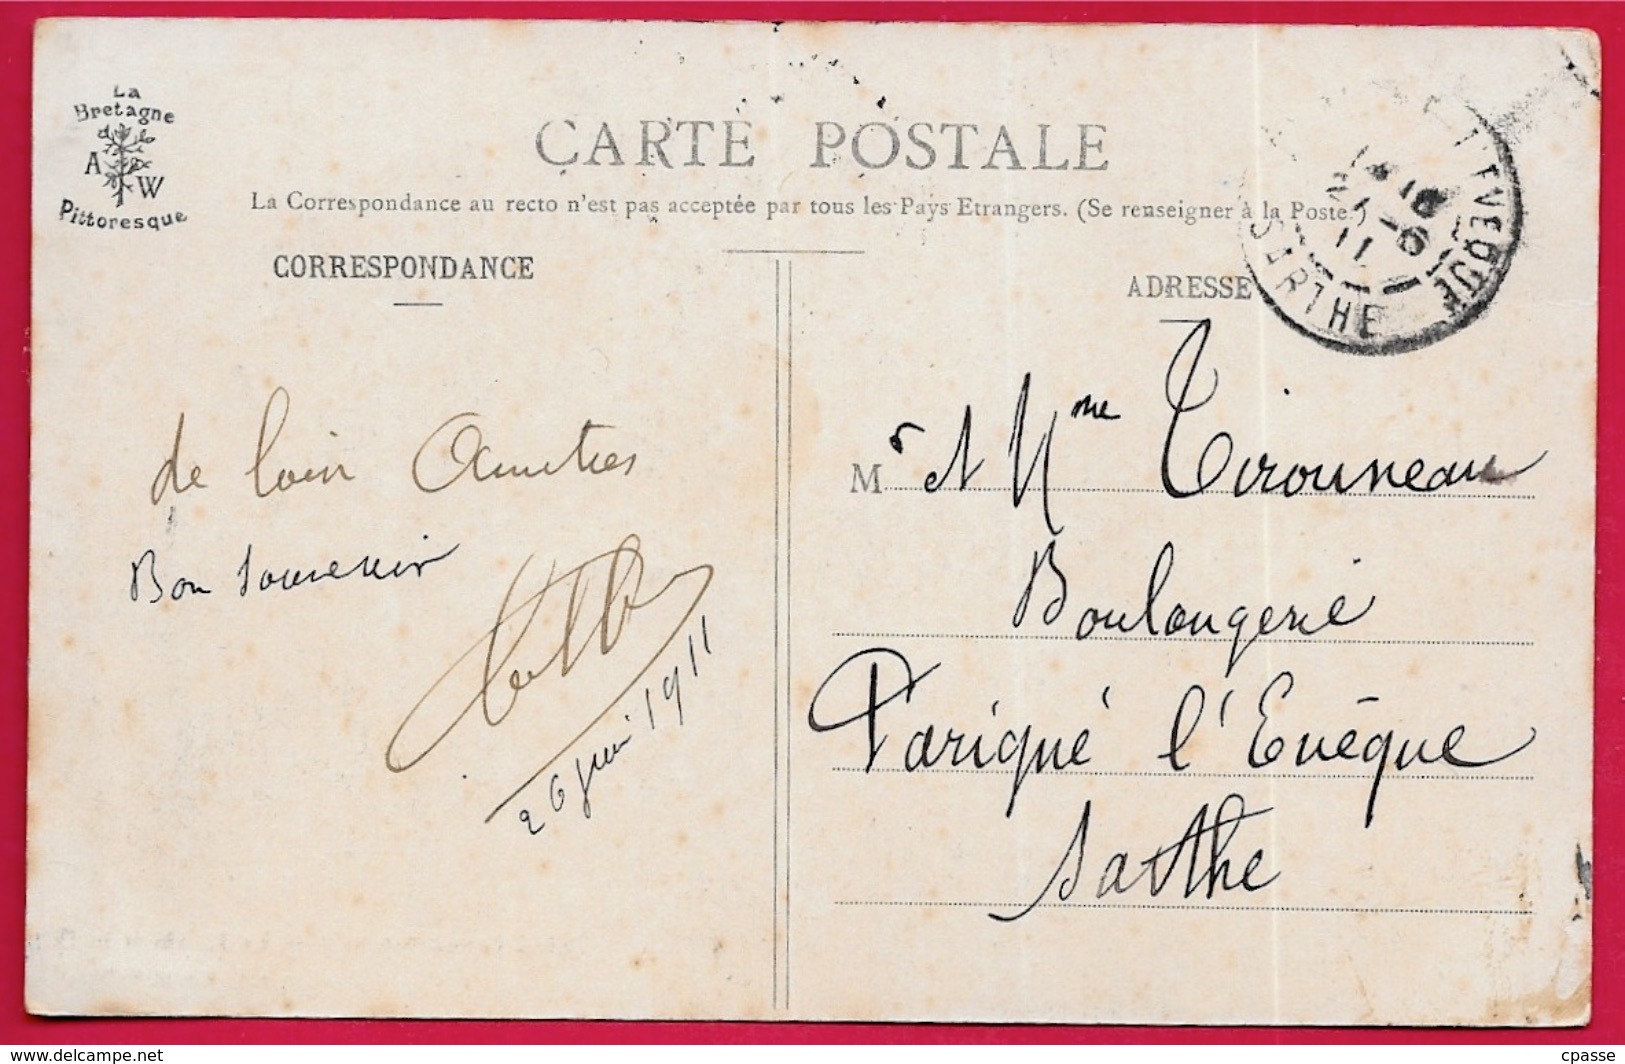 La
Bretagne
A W
Pittoresque
CARTE POSTALE
La Correspondance au recto n'est pas acceptée par tous les Pays Etrangers. (Se renseigner à la Poste.)
CORRESPONDANCE
de loin Amitiés
Bon souvenir
26 juin 1911
ADRESSE
SARTHE
Mr et Mme Tirouneau
Boulangerie
Parigné l'Evêque
Sarthe
www.delcampe.net
cpasse